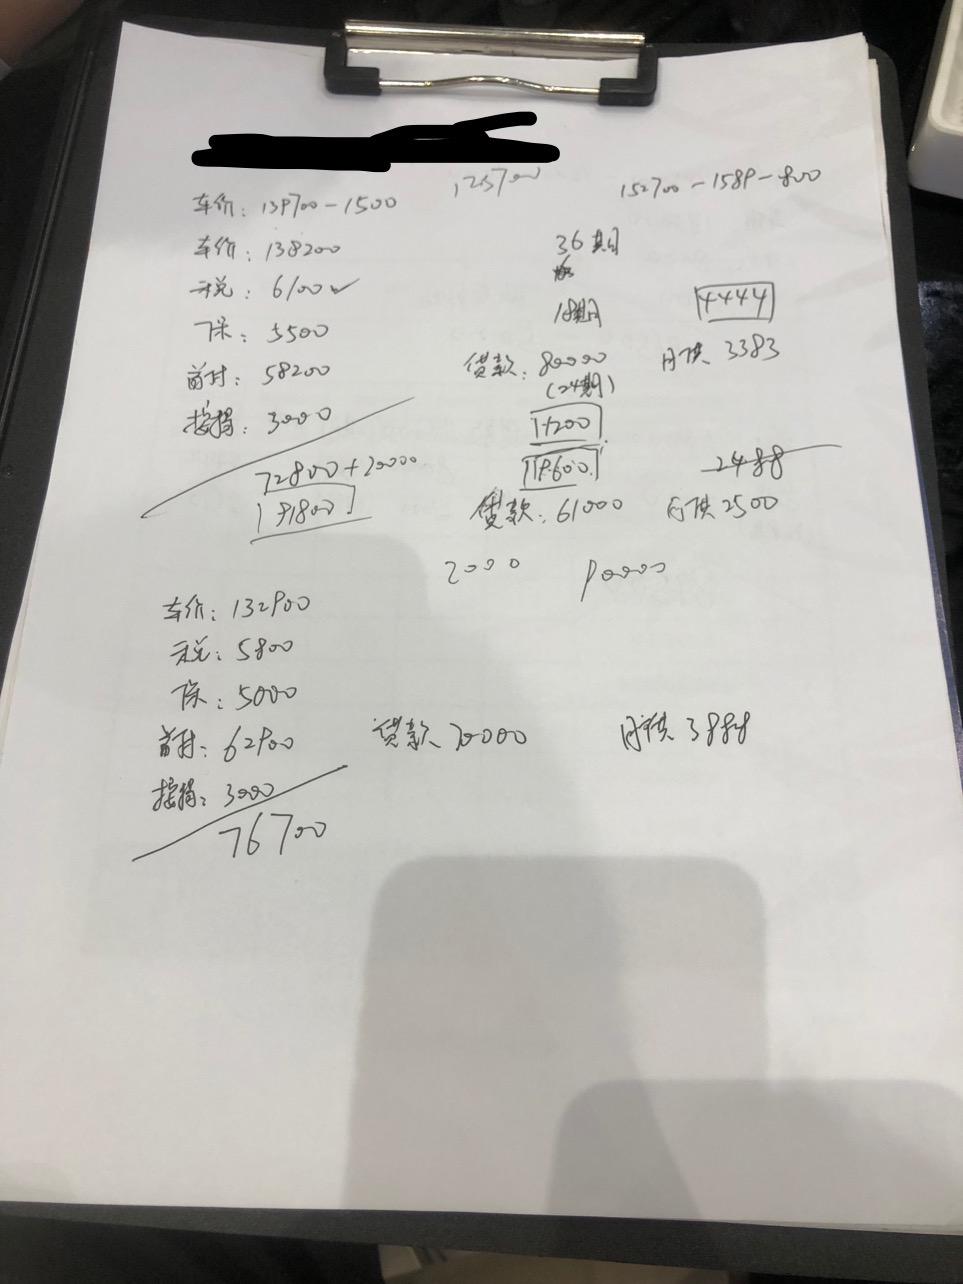 123700
152700-1589-800
车价：139700-1500
车价：138200
36期
税：6100✓
18期
4444
保：5500
贷款：80000 月供 3383
(24期)
首付：58200
按揭：3000
1+200
72800+20000
2488
91800
贷款：61000 月供 2500
2000
车价：132900
税：5800
保：5000
首付：62900 贷款 70000 月供 3888
按揭：3000
76700